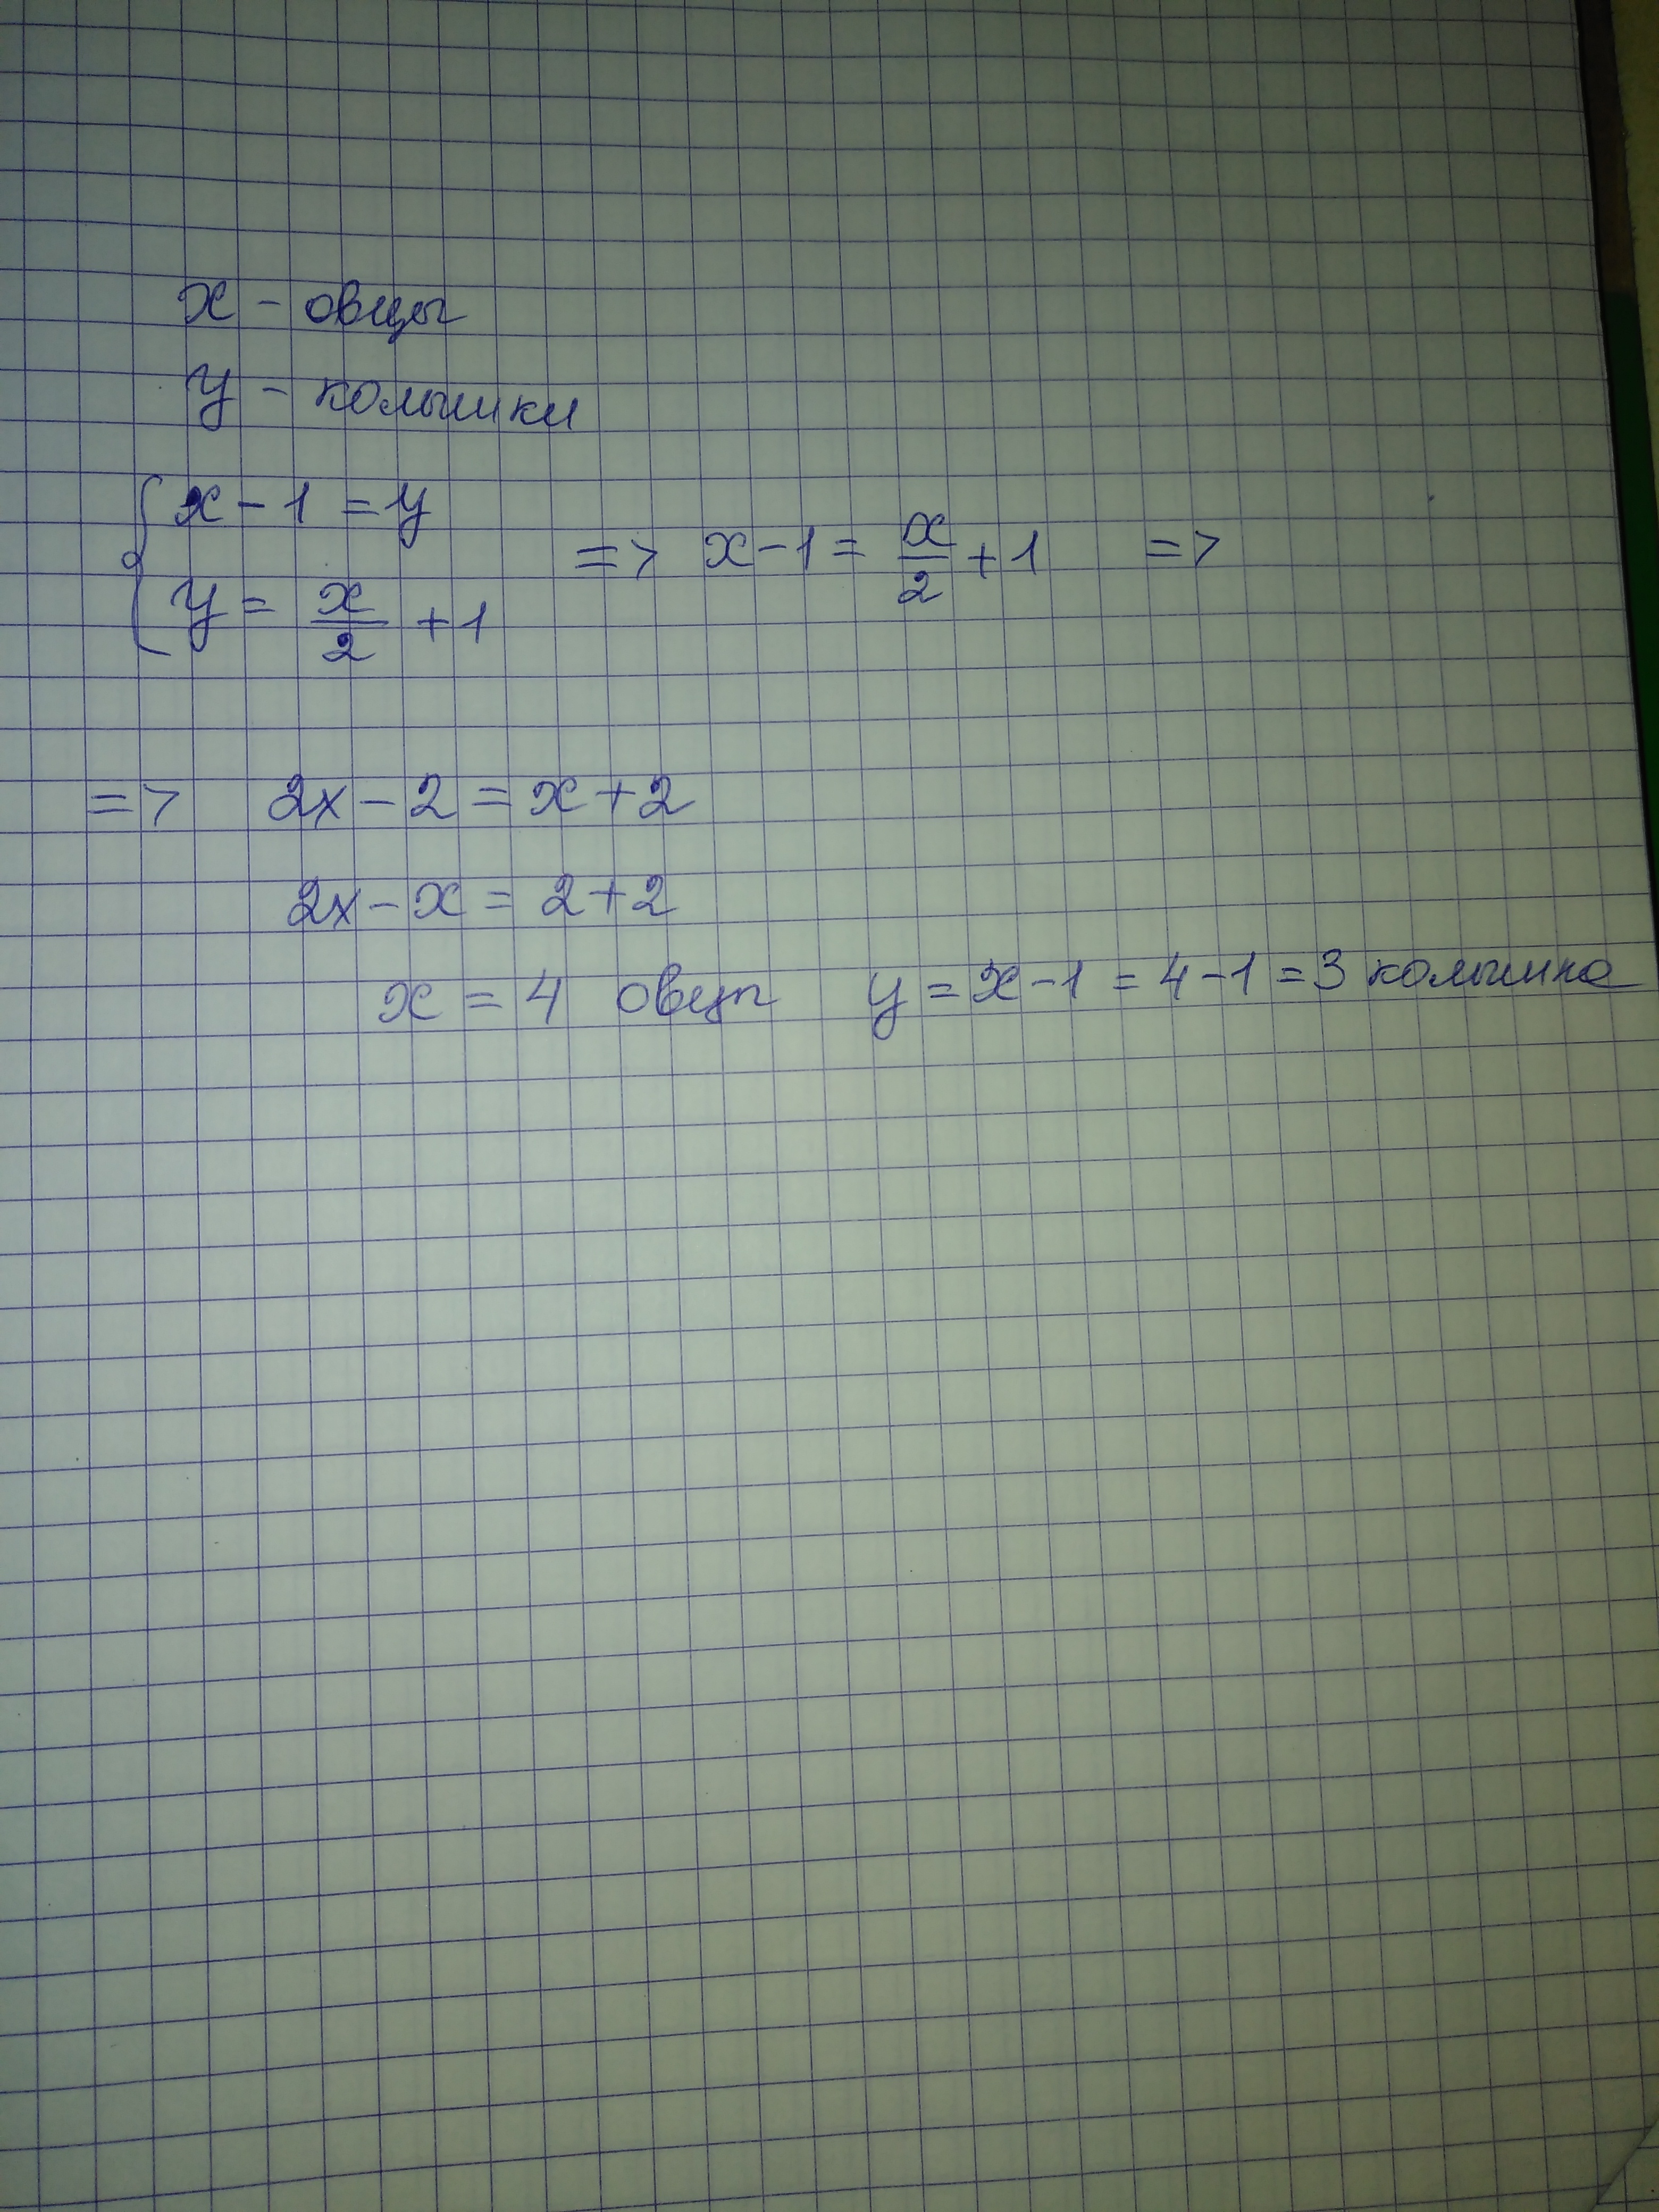 x - овцы
y - колышки
{ x - 1 = y
y = x/2 + 1
=> x - 1 = x/2 + 1 =>
=> 2x - 2 = x + 2
2x - x = 2 + 2
x = 4 овцы y = x - 1 = 4 - 1 = 3 колышка